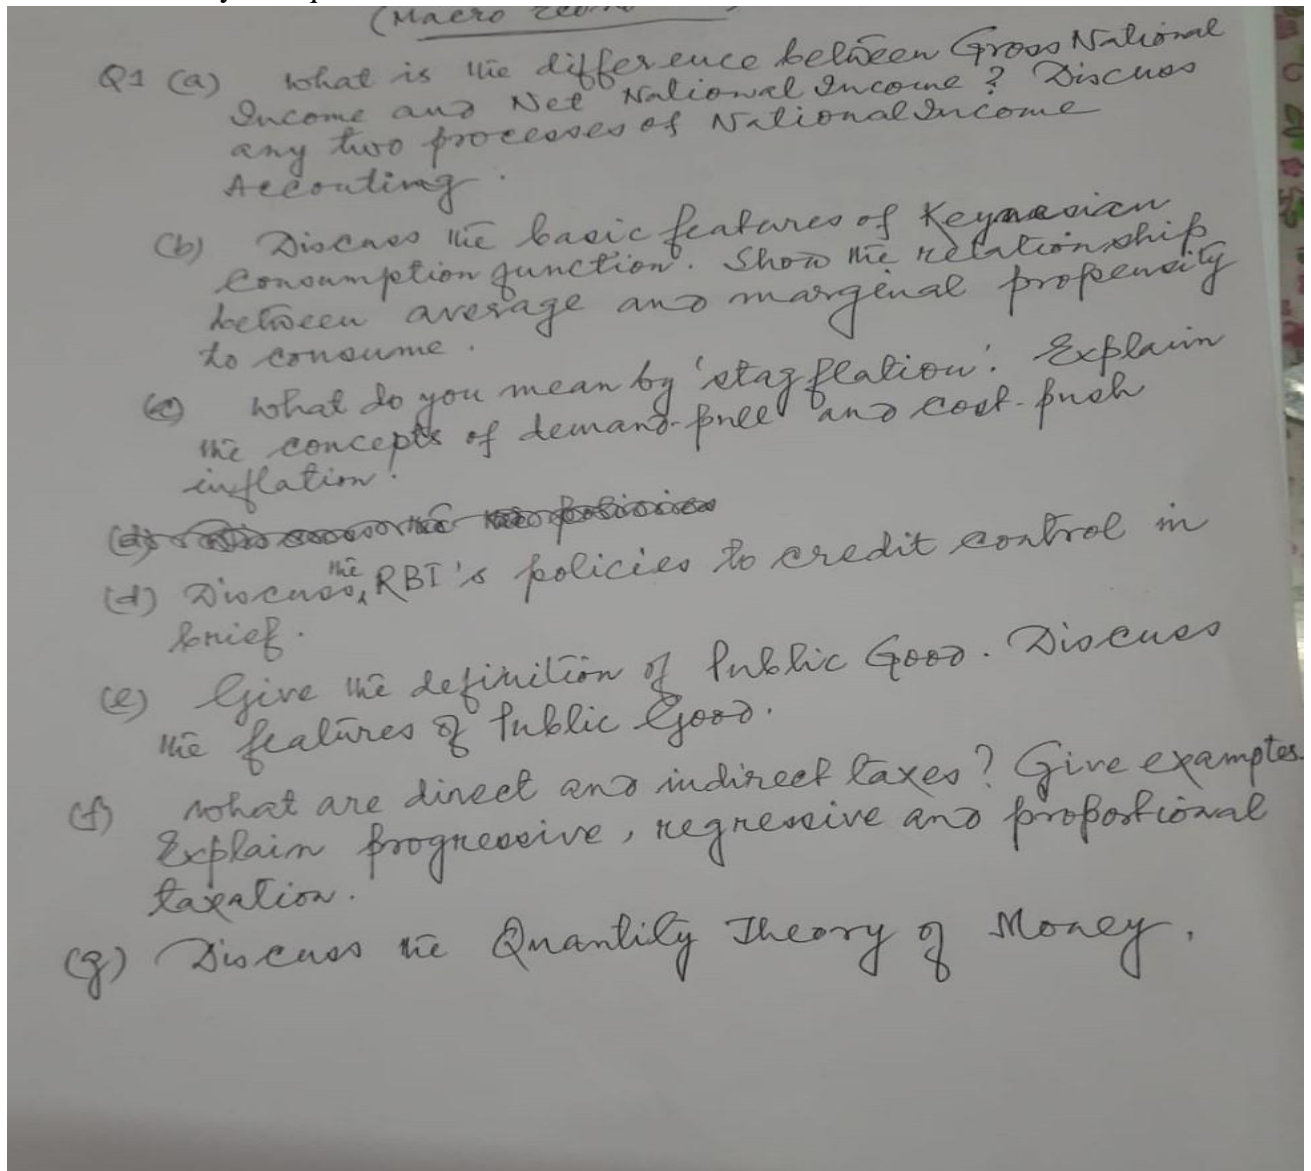 (Macro
Q1 (a) What is the difference between Gross National
Income and Net National Income? Discuss
any two processes of National Income
Accouting.
(b) Discuss the basic features of Keynesian
Consumption function. Show the relationship
between average and marginal propensity
to consume.
(c) What do you mean by 'stagflation'. Explain
the concepts of demand-pull and cost-push
inflation.
(d) Discuss the RBI's policies to credit control in
brief.
(e) Give the definition of Public Good. Discuss
the features of Public Good.
(f) What are direct and indirect taxes? Give examples.
Explain progressive, regressive and proportional
taxation.
(g) Discuss the Quantity Theory of Money.